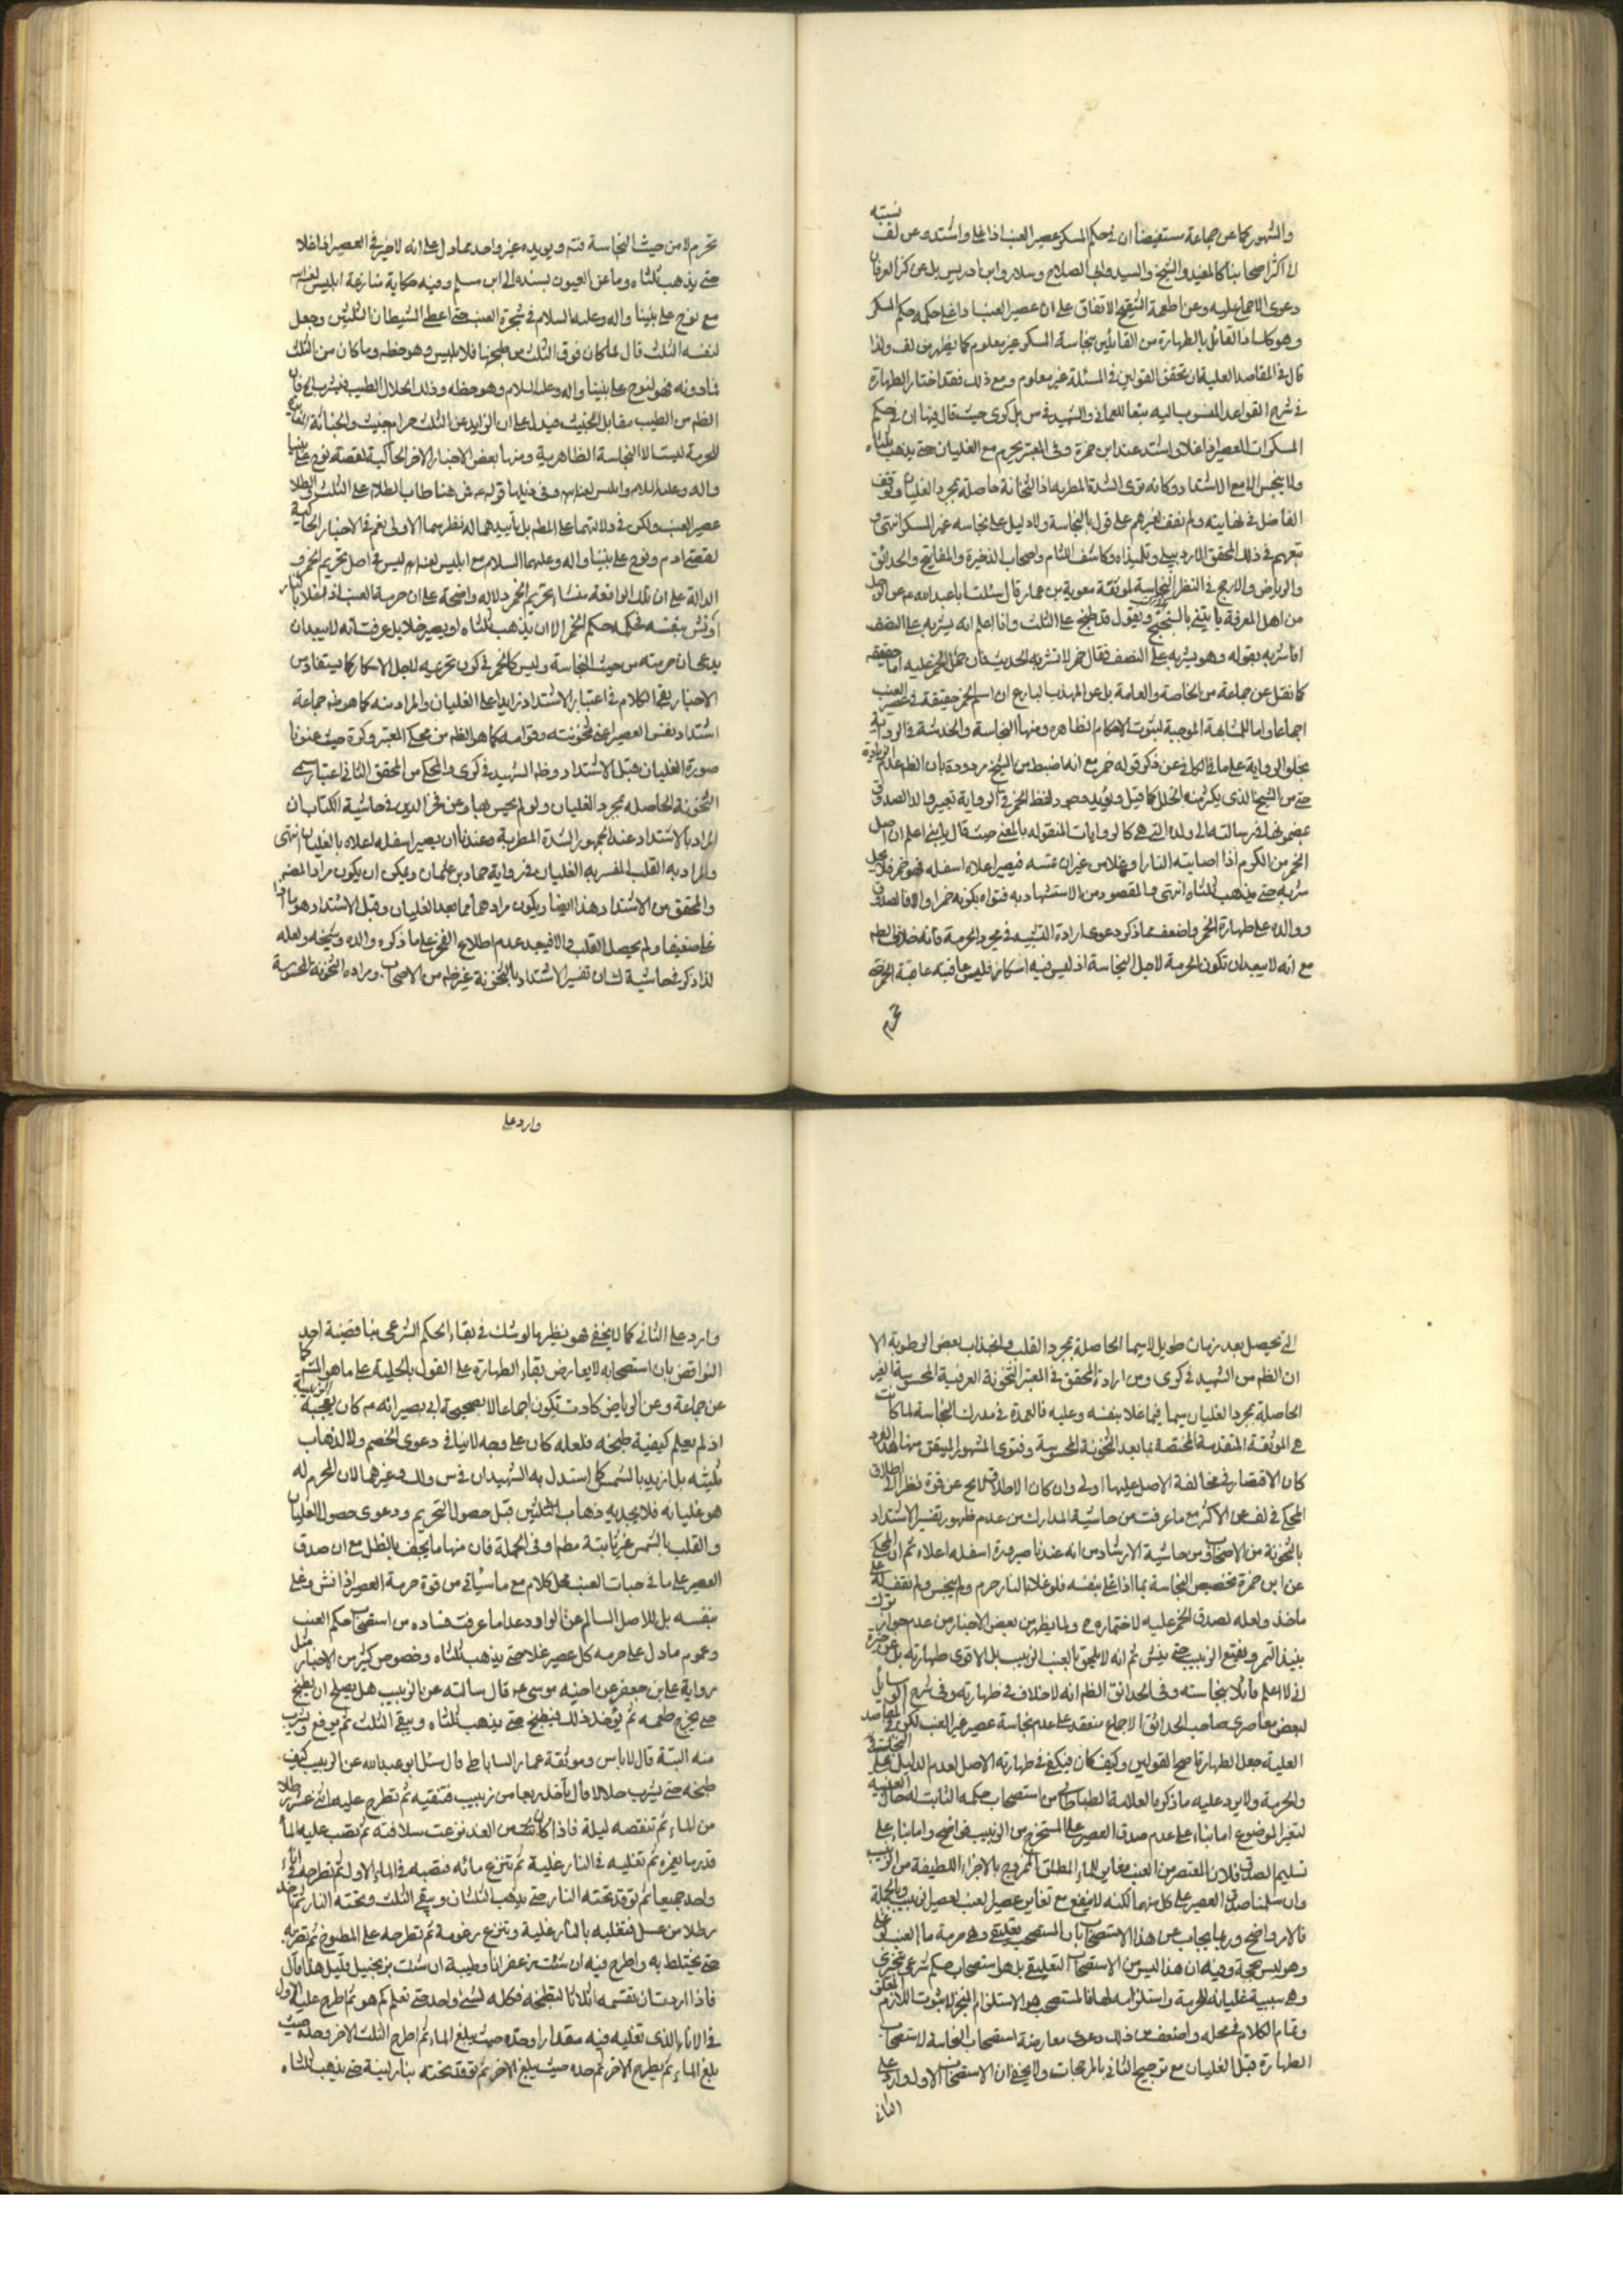 والمشهور كما عن جماعة مستفيضا ان في حكم المسكر عصير العنب اذا غلى واشتد وعن لف نسبته
الى اكثر اصحابنا كالمفيد والشيخ والسيد وابى الصلاح وسلار وابن ادريس بل عن كنز العرفان
دعوى الاجماع عليه وعن اطعمة التنقيح الاتفاق على ان عصير العنب اذا غلى حكمه حكم المسكر
القائل بالطهارة من القائلين بنجاسة المسكر غير معلوم كما يظهر من لف ولذا
قال في المقاصد العلية ان تحقق القولين في المسئلة غير معلوم ومع ذلك فقد اختار الطهارة
في شرح القواعد المنسوب اليه تبعا للعماني والشهيد في س بل كرى حيث قال فيها ان في حكم
المسكرات العصير اذا غلا واشتد عند ابن حمزة وفي المعتبر يحرم مع الغليان حتى يذهب ثلثاه
ولا ينجس الا مع الاشتداد وكانه يرى الشدة المطربة اذ الثخانة حاصلة بمجرد الغليان وتوقف
الفاضل في نهايته ولم نقف لغيرهم على قول بالنجاسة ولا دليل على نجاسة غير المسكر انتهى و
تبعهم في ذلك المحقق الاردبيلي وتلميذاه وكاشف اللثام واصحاب الذخيرة والمفاتيح والحدائق
والرياض والارجح في النظر النجاسة لموثقة معوية بن عمار قال سئلت ابا عبد الله ع عن الرجل
من اهل المعرفة ياتيني بالبختج ويقول قد طبخ على الثلث وانا اعلم انه يشربه على النصف
افاشربه بقوله وهو يشربه على النصف فقال خمر لا تشربه الحديث فان حمل الخمر عليه اما حقيقة
كما نقل عن جماعة من الخاصة والعامة بل عن المهذب البارع ان اسم الخمر حقيقة في عصير العنب
اجماعا واما للمشابهة الموجبة لثبوت الاحكام الظاهرة ومنها النجاسة والخدشة في الرواية
بخلو الرواية على ما في الكافي عن ذكر قوله خمر مع انه اضبط من الشيخ مردودة بان الظم عدم الزيادة
حتى من الشيخ الذى يكثر منه الخلل كما قيل ويؤيد وجود لفظ الخمر في الرواية تعبير والد الصدوق
في رسالته الى ولده التي هي كالروايات المنقولة بالمعنى حيث قال يا بنى اعلم ان اصل
الخمر من الكرم اذا اصابته النار او غلا من غير ان تمسه فيصير اعلاه اسفله فهو خمر فلا يحل
شربه حتى يذهب ثلثاه انتهى والمقصود من الاستشهاد به فتواه بكونه خمرا والا فالصدوق
ووالده على طهارة الخمر واضعف مما ذكر دعوى ارادة التشبيه في مجرد الحرمة فانه خلاف الظم
مع انه لا يبعد ان تكون الحرمة لاجل النجاسة اذ ليس فيه اسكار فليس عاقبته عاقبة الخمر حتى
تحرم
تحرم لا من حيث النجاسة فتم ويؤيده غير واحد مما دل على انه لا خير في العصير اذا غلا
حتى يذهب ثلثاه وما عن العيون بسنده الى ابن مسلم وفيه حكاية منازعة ابليس لعنه الله
مع نوح على نبينا واله وعليه السلام في شجرة العنب حتى اعطى الشيطان الثلثين وجعل
لنفسه الثلث قال فما كان فوق الثلث من طبخها فلابليس وهو حظه وما كان من الثلث
فما دونه فهو لنوح على نبينا واله وعليه السلام وهو حظه وذلك الحلال الطيب فيشرب فان
الظم من الطيب مقابل الخبيث فيدل على ان الزايد عن الثلث حرام خبيث والخباثة
للحرمة ليست الا النجاسة الظاهرية ومنها بعض الاخبار الاخر الحاكية لقصة نوح على نبينا
واله وعليه السلام وابليس لعنه الله وفي ذيلها قوله ع فمن هنا طاب الطلاء على الثلث وفي الطلا
عصير العنب ولكن في دلالتهما على المطم بل تأييدهما له نظر سيما الاولى نعم في الاخبار الحاكية
لقصتى ادم ونوح على نبينا واله وعليهما السلام مع ابليس لعنه الله في اصل تحريم الخمر و
الدالة على ان تلك الواقعة منشاء تحريم الخمر دلالة واضحة على ان حرمة العنب اذا غلا بالنار
او نش بنفسه فحكمه حكم الخمر الا ان يذهب ثلثاه او يصير خلا بل عرفت انه لا يبعد ان
يدعى ان حرمته من حيث النجاسة وليس كالخمر في كون تحريمه لاجل الاسكار كما يستفاد من
الاخبار بقى الكلام في اعتبار الاشتداد زايدا على الغليان والمراد منه كما هو ظم جماعة
اشتداد نفس العصير اعنى ثخونته وقوامه كما هو الظم من محكى المعتبر وكرة حيث عنونا
صورة الغليان قبل الاشتداد وظم الشهيد في كرى والمحكى من المحقق الثاني اعتبار مسمى
الثخونة الحاصلة بمجرد الغليان ولو لم يحس بها وعن فخر الدين في حاشية الكتاب ان
المراد بالاشتداد عند الجمهور الشدة المطربة وعندنا ان يصير اسفله اعلاه بالغليان انتهى
والمراد به القلب المفسر به الغليان في رواية حماد بن عثمان ويمكن ان يكون مراد المصنف
والمحقق من الاشتداد هذا ايضا ويكون مرادهما مما بعد الغليان وقبل الاشتداد هو ما اذا
غلا ضعيفا ولم يحصل القلب والا فيبعد عدم اطلاع الفخر على ما ذكره والده وشيخه ولعله
لذا ذكر في حاشية تفسير الاشتداد بالثخونة غير ظم من الاصحاب ومراده الثخونة المحسوسة
التي تحصل بعد زمان طويل لا سيما الحاصلة بمجرد القلب وانجذاب بعض الرطوبة الا
ان الظم من الشهيد في كرى ومن ارادة المحقق في المعتبر الثخونة العرفية المحسوسة الغير
الحاصلة بمجرد الغليان سيما فيما غلا بنفسه وعليه فالعمدة في مدرك النجاسة لما كانت
هى الموثقة المتقدمة المختصة بما بعد الثخونة المحسوسة وفتوى المشهور المتيقن منها هذا الفرد
كان الاقتصار في مخالفة الاصل عليها اولى وان كان الاطلاق لا يخ عن قوة نظرا الى اطلاق
المحكى في لف عن الاكثر مع ما عرفت من حاشية المدارك من عدم ظهور تفسير الاشتداد
بالثخونة من الاصحاب ومن حاشية الارشاد من انه عندنا صيرورة اسفله اعلاه ثم ان المحكى
عن ابن حمزة تخصيص النجاسة بما اذا غلى بنفسه فلو غلا بالنار حرم ولم ينجس ولم نقف له على
ماخذ ولعله لصدق الخمر عليه لاختماره ح ولما يظهر من بعض الاخبار من عدم جواز شرب
نبيذ التمر ونقيع الزبيب حتى ينش ثم انه لا يلحق بالعنب الزبيب بل الاقوى طهارته بل عن خيرة
انى لا اعلم قائلا بنجاسته وفي الحدائق الظم انه لا خلاف في طهارته وفي شرح الوسائل
لبعض معاصرى صاحب الحدائق الاجماع منعقد على عدم نجاسة عصير غير العنب لكن في المقاصد
العلية جعل الطهارة اصح القولين وكيف كان فيكفى في طهارته الاصل لعدم الدليل على النجاسة
والحرمة ولا يرد عليه ما ذكره العلامة الطباطبائي من استصحاب حكمه الثابت له حال العنبية
لتغير الموضوع اما بناء على عدم صدق العصير على المستخرج من الزبيب فواضح واما بناء على
تسليم الصدق فلان المعتصر من العنب مغاير للماء المطلق الممزوج بالاجزاء اللطيفة من الزبيب
وان سلمنا صدق العصير على كل منهما لكنه لا ينفع مع تغاير عصير العنب لعصير الزبيب وبالجملة
فالامر واضح وربما يجاب عن هذا الاستصحاب بان المستصحب تعليقى وهو حرمة ماء العنب لو غلى
وهو ليس بحجة وفيه ان هذا ليس من الاستصحاب التعليقى بل هو استصحاب حكم شرعى تنجزى
وهى سببية غليانه للحرمة واستلزامه لها فالمستصحب هو الاستلزام المنجز لا ثبوت اللازم المعلق
وتمام الكلام في محله واضعف من ذلك دعوى معارضة استصحاب النجاسة لاستصحاب
الطهارة قبل الغليان مع ترجيح الثاني بالمرجحات ولا يخفى ان الاستصحاب الاول وارد على
الثاني
وارد على
وارد على الثاني كما لا يخفى وهو نظير ما لو شك في بقاء الحكم الشرعى بناقضية احد
النواقض بان استصحابه لا يعارض بقاء الطهارة على القول بالحلية على ما هو المشهور كما
عن جماعة وعن الرياض كادت تكون اجماعا لا بصحيحة ابى بصير انه ع كان يعجبه الزبيبة
اذ لم يعلم كيفية طبخه فلعله كان على وجه لا ينافى دعوى الخصم ولا لذهاب
ثلثيه بل ازيد بالشمس كما استدل به الشهيدان في س ولك وغيرهما لان المحرم له
هو غليانه فلا يجديه ذهاب الثلثين قبل حصول التحريم ودعوى حصول الغليان
والقلب بالشمس غير ثابتة مطم او في الجملة فان منها ما يجفف بالظل مع ان صدق
العصير على ما في حبات العنب محل كلام مع ما سيأتي من قوة حرمة العصير اذا نش وغلى
بنفسه بل للاصل السالم عن الوارد عدا ما عرفت فساده من استصحاب حكم العنب
وعموم ما دل على حرمة كل عصير غلا حتى يذهب ثلثاه وخصوص كثير من الاخبار مثل
رواية على بن جعفر عن اخيه موسى ع قال سألته عن الزبيب هل يصلح ان يطبخ
حتى يخرج طعمه ثم يؤخذ ذلك فيطبخ حتى يذهب ثلثاه ويبقى الثلث ثم يرفع ويشرب
منه السنة قال لا باس وموثقة عمار الساباطى قال سئل ابو عبد الله عن الزبيب كيف
طبخه حتى يشرب حلالا قال تأخذ ربعا من زبيب فتنقيه ثم تطرح عليه اثنى عشر رطلا
من الماء ثم تنقعه ليلة فاذا كان من الغد نزعت سلافته ثم تصب عليه الماء
قدر ما يغمره ثم تغليه في النار غلية ثم تنزع مائه فتصبه في الماء الاول ثم تطرحه في اناء
واحد جميعا ثم توقد تحته النار حتى يذهب الثلثان ويبقى الثلث وتحته النار ثم تاخذ
رطلا من عسل فتغليه بالنار غلية وتنزع رغوته ثم تطرحه على المطبوخ ثم تضربه
حتى يختلط به واطرح فيه ان شئت زعفرانا وطيبه ان شئت بزنجبيل قليل هذا قال
فاذا اردت ان تقسمه اثلاثا لتطبخه فكله لشىء واحد حتى تعلم كم هو ثم اطرح عليه الاول
في الاناء الذى تغليه فيه مقدارا وحده حيث يبلغ الماء ثم اطرح الثلث الاخر وحده حيث
بلغ الماء ثم يطرح الاخر ثم حده حيث يبلغ الاخر ثم توقد تحته بنار لينة حتى يذهب ثلثاه